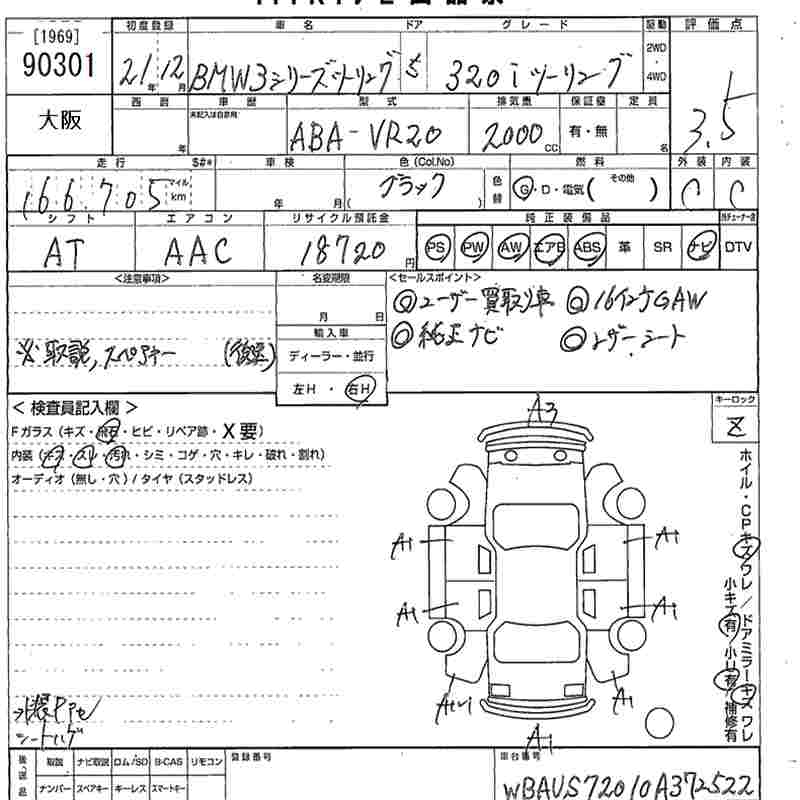 [1969]
90301
初度登録 車名 ドア グレード 駆動 評価点
21年12月 BMW3シリーズツーリング 5 320iツーリング 2WD・4WD 3.5
大阪
西暦 車歴 型式 排気量 保証書 定員
年 未記入は自家用 ABA-VR20 2000CC 有・無 名
走行 S#* 車検 色(Col.No) 燃料 外装 内装
166,705 マイル km 年 月 ブラック ( ) 色替 G・D・電気( その他 ) C C
シフト エアコン リサイクル預託金 純正装備品
AT AAC 18720円 PS PW AW エアB ABS 革 SR ナビ DTV
<注意事項> 名変期限 <セールスポイント>
月 日 ◎ユーザー買取り車 ◎16インチGAW
輸入車 ◎純正ナビ ◎レザーシート
※取説,スペアキー (後送) ディーラー・並行
左H・右H
<検査員記入欄> キーロック
Fガラス(キズ・飛石・ヒビ・リペア跡・X要) Z
内装(キズ・スレ・汚れ・シミ・コゲ・穴・キレ・破れ・割れ)
オーディオ(無し・穴)/タイヤ(スタッドレス)
A3
A1 A1
A1 A1
A1
A1
ホイル・CPキズワレ/ドアミラーキズワレ
小キズ有・小U有・補修有
後送品 取説 ナビ取説 ロム/SD B-CAS リモコン 登録番号 車台番号
ナンバー スペアキー キーレス スマートキー WBAUS72010A372522